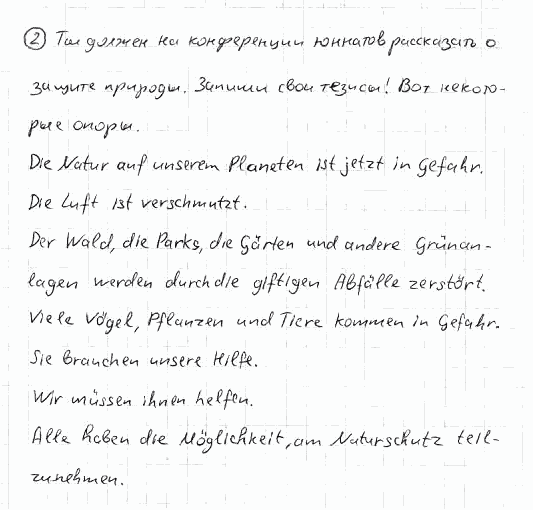 ② Ты должен на конференции юннатов рассказать о
защите природы. Запиши свои тезисы! Вот некото-
рые опоры.
Die Natur auf unserem Planeten ist jetzt in Gefahr.
Die Luft ist verschmutzt.
Der Wald, die Parks, die Gärten und andere Grünan-
lagen werden durch die giftigen Abfälle zerstört.
Viele Vögel, Pflanzen und Tiere kommen in Gefahr.
Sie brauchen unsere Hilfe.
Wir müssen ihnen helfen.
Alle haben die Möglichkeit, am Naturschutz teil-
zunehmen.